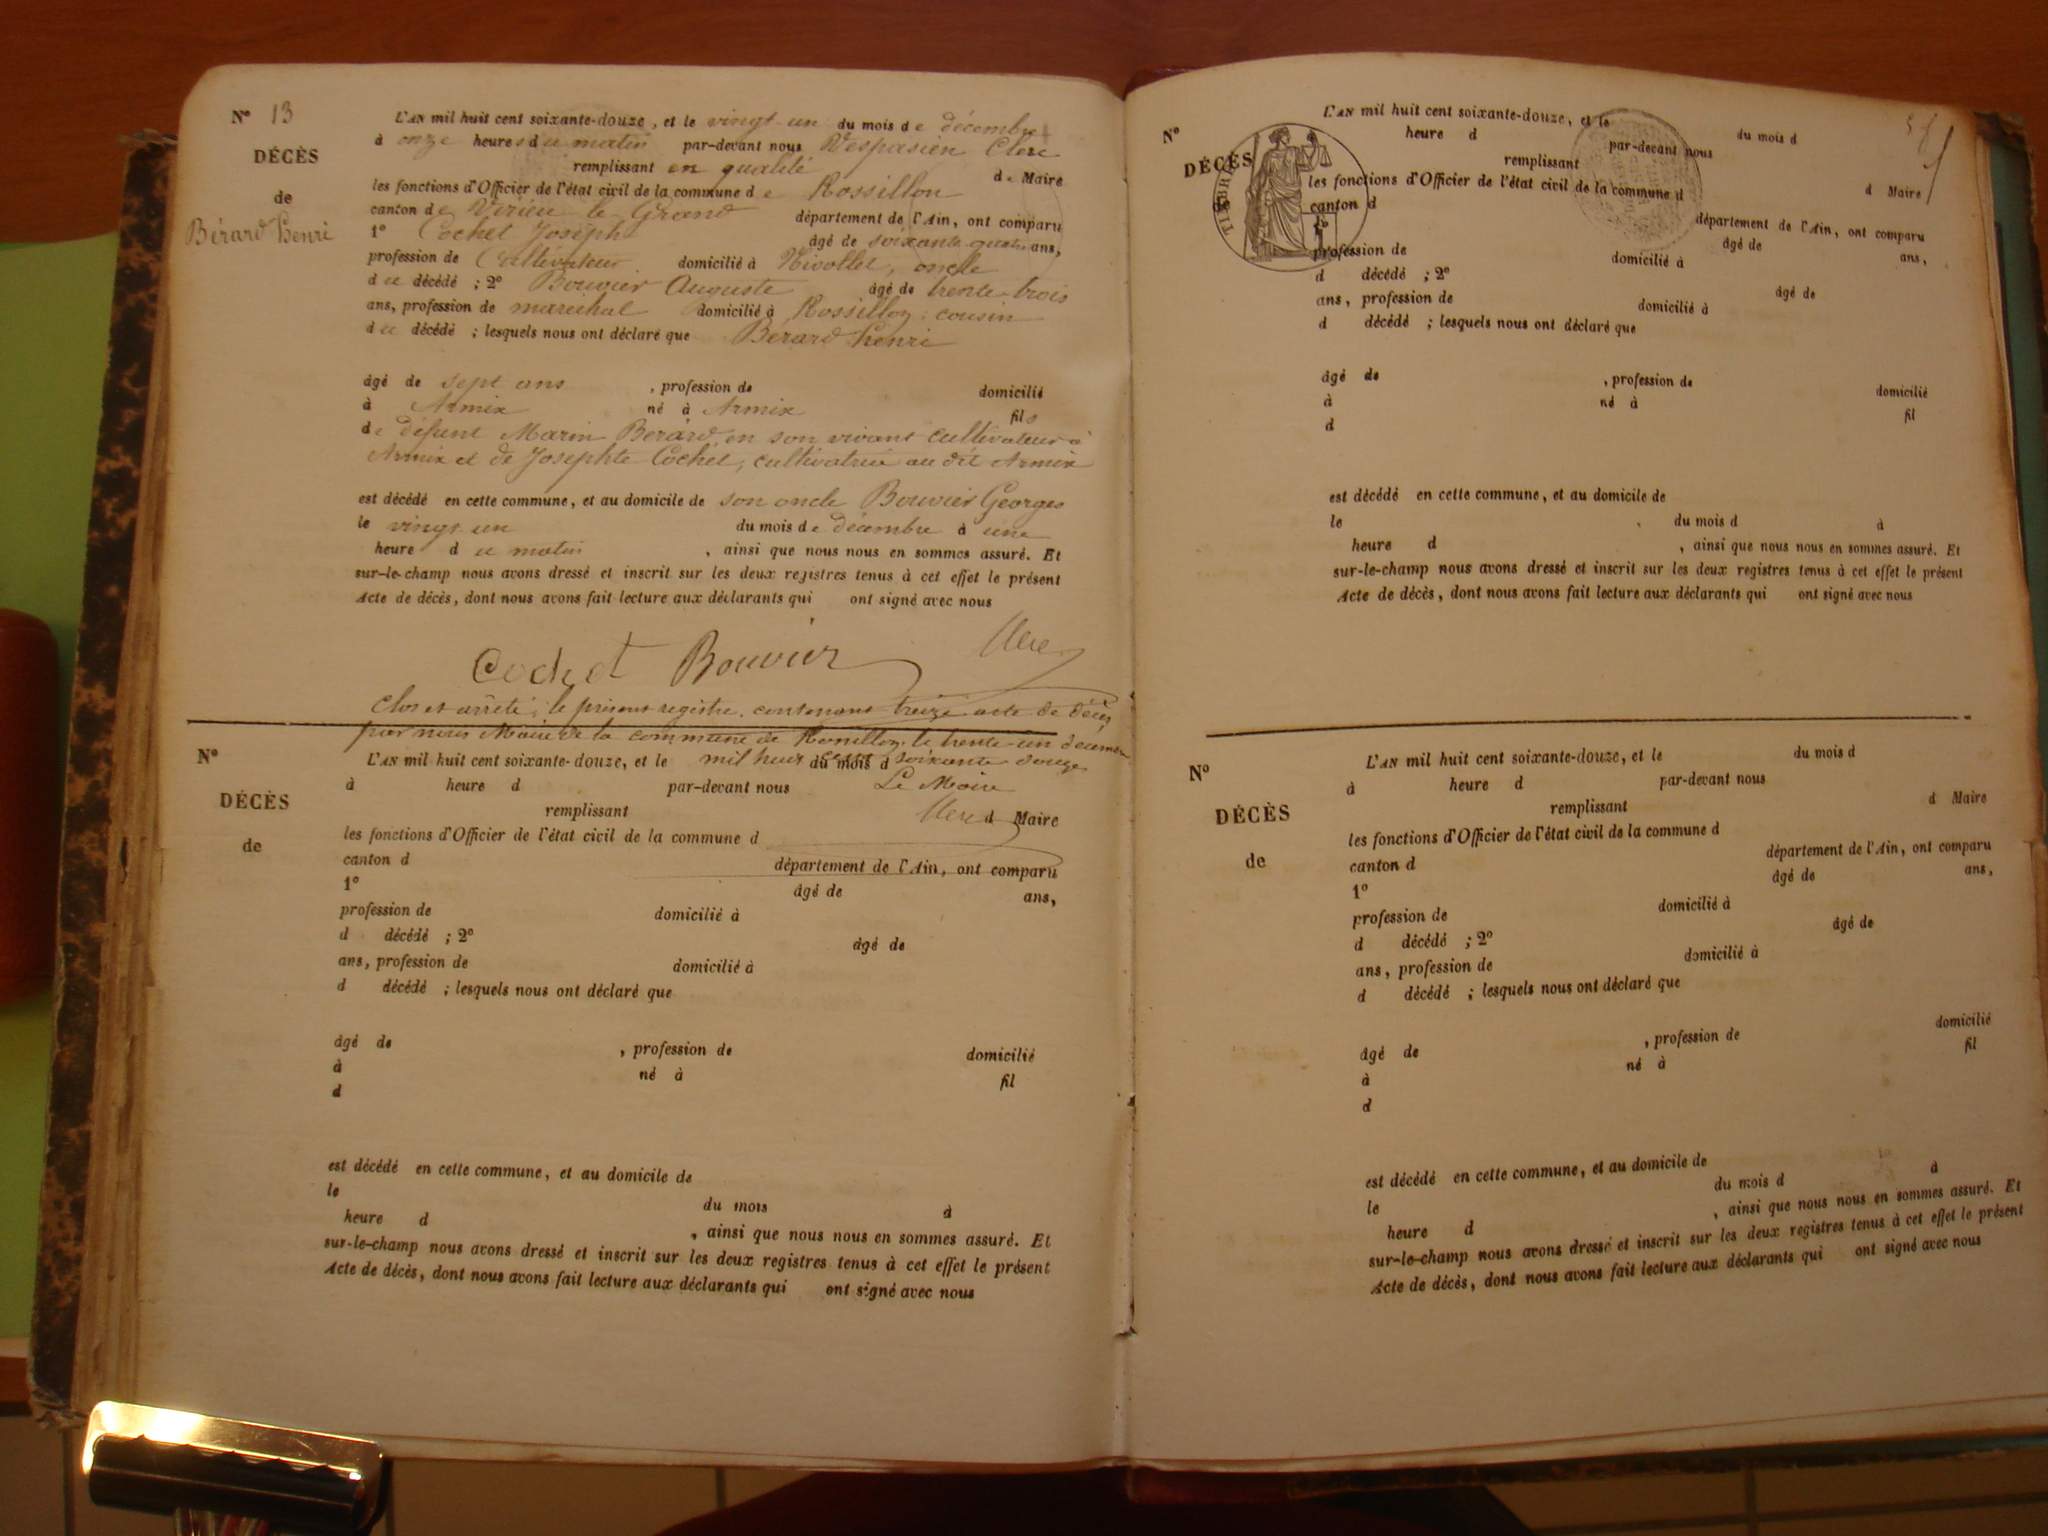 N° 13
DÉCÈS
de
Bérard henri
L'AN mil huit cent soixante-douze, et le vingt-un du mois de décembre
à onze heures du matin par-devant nous Vespasien Clerc
remplissant en qualité de Maire
les fonctions d'Officier de l'état civil de la commune de Rossillon
canton de Virieu le Grand département de l'Ain, ont comparu
1° Cochet Joseph âgé de soixante quatre ans,
profession de Cultivateur domicilié à Nivollet, oncle
du décédé ; 2° Bouvier Auguste âgé de trente-trois
ans, profession de maréchal domicilié à Rossillon, cousin
du décédé ; lesquels nous ont déclaré que Bérard henri
âgé de sept ans , profession de domicilié
à Armix né à Armix fils
de défunt Marin Bérard, en son vivant cultivateur à
Armix et de Josephte Cochet, cultivatrice au dit Armix
est décédé en cette commune, et au domicile de son oncle Bouvier Georges
le vingt un du mois de décembre à une
heure du matin , ainsi que nous nous en sommes assuré. Et
sur-le-champ nous avons dressé et inscrit sur les deux registres tenus à cet effet le présent
Acte de décès, dont nous avons fait lecture aux déclarants qui ont signé avec nous
Cochet Bouvier Clerc
Clos et arrêté, le présent registre, contenant treize acte de décès
par nous Maire de la commune de Rossillon, le trente-un décembre
mil huit cent soixante douze
Le Maire
Clerc
N°
DÉCÈS
de
L'AN mil huit cent soixante-douze, et le du mois d
à heure d par-devant nous
remplissant d Maire
les fonctions d'Officier de l'état civil de la commune d
canton d département de l'Ain, ont comparu
1° âgé de ans,
profession de domicilié à
d décédé ; 2° âgé de
ans, profession de domicilié à
d décédé ; lesquels nous ont déclaré que
âgé de , profession de domicilié
à né à fil
d
est décédé en cette commune, et au domicile de
le du mois à
heure d , ainsi que nous nous en sommes assuré. Et
sur-le-champ nous avons dressé et inscrit sur les deux registres tenus à cet effet le présent
Acte de décès, dont nous avons fait lecture aux déclarants qui ont signé avec nous
N°
DÉCÈS
TIMBRE
L'AN mil huit cent soixante-douze, et le du mois d
heure d par-devant nous
remplissant d Maire
les fonctions d'Officier de l'état civil de la commune d
canton d département de l'Ain, ont comparu
1° âgé de ans,
profession de domicilié à
d décédé ; 2° âgé de
ans, profession de domicilié à
d décédé ; lesquels nous ont déclaré que
âgé de , profession de domicilié
à né à fil
d
est décédé en cette commune, et au domicile de
le du mois d à
heure d , ainsi que nous nous en sommes assuré. Et
sur-le-champ nous avons dressé et inscrit sur les deux registres tenus à cet effet le présent
Acte de décès, dont nous avons fait lecture aux déclarants qui ont signé avec nous
N°
DÉCÈS
de
L'AN mil huit cent soixante-douze, et le du mois d
à heure d par-devant nous
remplissant d Maire
les fonctions d'Officier de l'état civil de la commune d
canton d département de l'Ain, ont comparu
1° âgé de ans,
profession de domicilié à
d décédé ; 2° âgé de
ans, profession de domicilié à
d décédé ; lesquels nous ont déclaré que
âgé de , profession de domicilié
à né à fil
d
est décédé en cette commune, et au domicile de
le du mois d à
heure d , ainsi que nous nous en sommes assuré. Et
sur-le-champ nous avons dressé et inscrit sur les deux registres tenus à cet effet le présent
Acte de décès, dont nous avons fait lecture aux déclarants qui ont signé avec nous